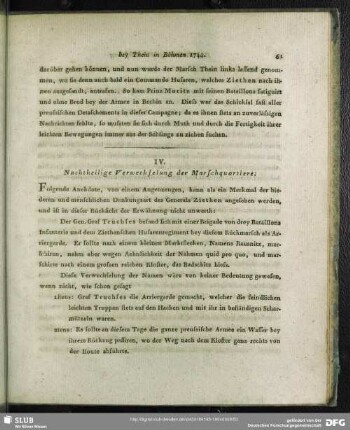 bey Thein in Böhmen 1744. 61
darüber gehen können, und nun wurde der Marsch Thein links lassend genom-
men, wo sie denn auch bald ein Commando Husaren, welches Ziethen nach ih-
nen ausgesandt, antrafen. So kam Prinz Moritz mit seinen Bataillons fatiguirt
und ohne Brod bey der Armee in Bechin an. Dieses war das Schicksal fast aller
preussischen Detaschements in dieser Campagne; da es ihnen stets an zuverlässigen
Nachrichten fehlte, so mussten sie sich durch Muth und durch die Fertigkeit ihrer
leichten Bewegungen immer aus der Schlinge zu ziehen suchen.
IV.
Nachtheilige Verwechselung der Marschquartiere;
Folgende Anekdote, von einem Augenzeugen, kann als ein Merkmal der bie-
deren und menschlichen Denkungsart des Generals Ziethen angesehen werden,
und ist in dieser Rücksicht der Erwähnung nicht unwerth:
Der Gen. Graf Truchses befand sich mit einer Brigade von drey Bataillons
Infanterie und dem Ziethenschen Husarenregiment bey diesem Rückmarsch als Ar-
riergarde. Er sollte nach einem kleinen Marktflecken, Namens Raunitz, mar-
schiren, nahm aber wegen Aehnlichkeit der Nahmen quid pro quo, und mar-
schirte nach einem grossen reichen Kloster, das
Diese Verwechselung der Namen wäre von keiner Bedeutung gewesen,
wenn nicht, wie schon gesagt
1stens: Graf Truchses die Arriergarde gemacht, welcher die feindlichen
leichten Truppen stets auf den Hacken und mit ihr in beständigen Schar-
mützeln waren.
2tens: Es sollte an diesem Tage die ganze preussische Armee ein Wasser bey
ihrem Rückzug passiren, wo der Weg nach dem Kloster ganz rechts von
der Route abführte.
SLUB
Wir führen Wissen.
gefördert von der
Deutschen Forschungsgemeinschaft
DFG